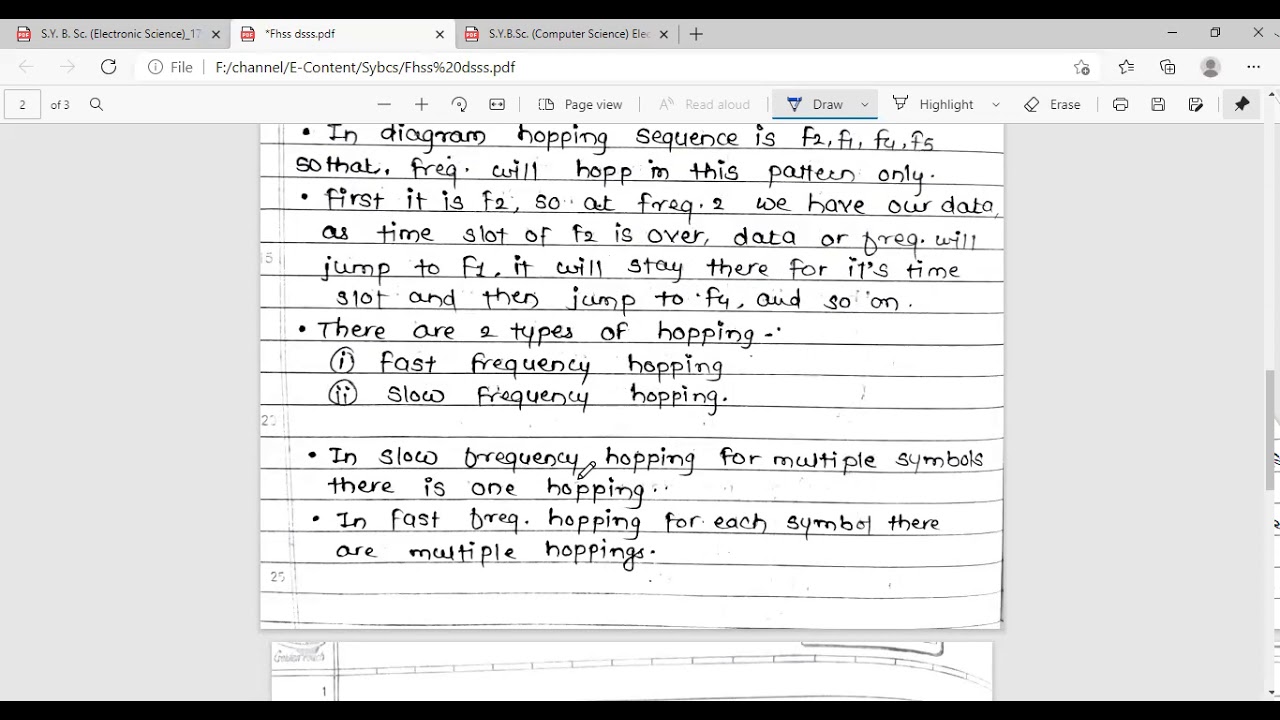 S.Y. B. Sc. (Electronic Science)_17
*Fhss dsss.pdf
S.Y.B.Sc. (Computer Science) Elec
File F:/channel/E-Content/Sybcs/Fhss%20dsss.pdf
2 of 3 Page view Read aloud Draw Highlight Erase
• In diagram hopping sequence is f2, f1, f4, f5
so that, freq. will hopp in this pattern only.
• first it is f2, so at freq. 2 we have our data,
as time slot of f2 is over, data or freq. will
jump to f1, it will stay there for it's time
slot and then jump to f4, and so on.
• There are 2 types of hopping -
(i) fast frequency hopping
(ii) slow frequency hopping.
• In slow frequency hopping for multiple symbols
there is one hopping.
• In fast freq. hopping for each symbol there
are multiple hoppings.
25
1